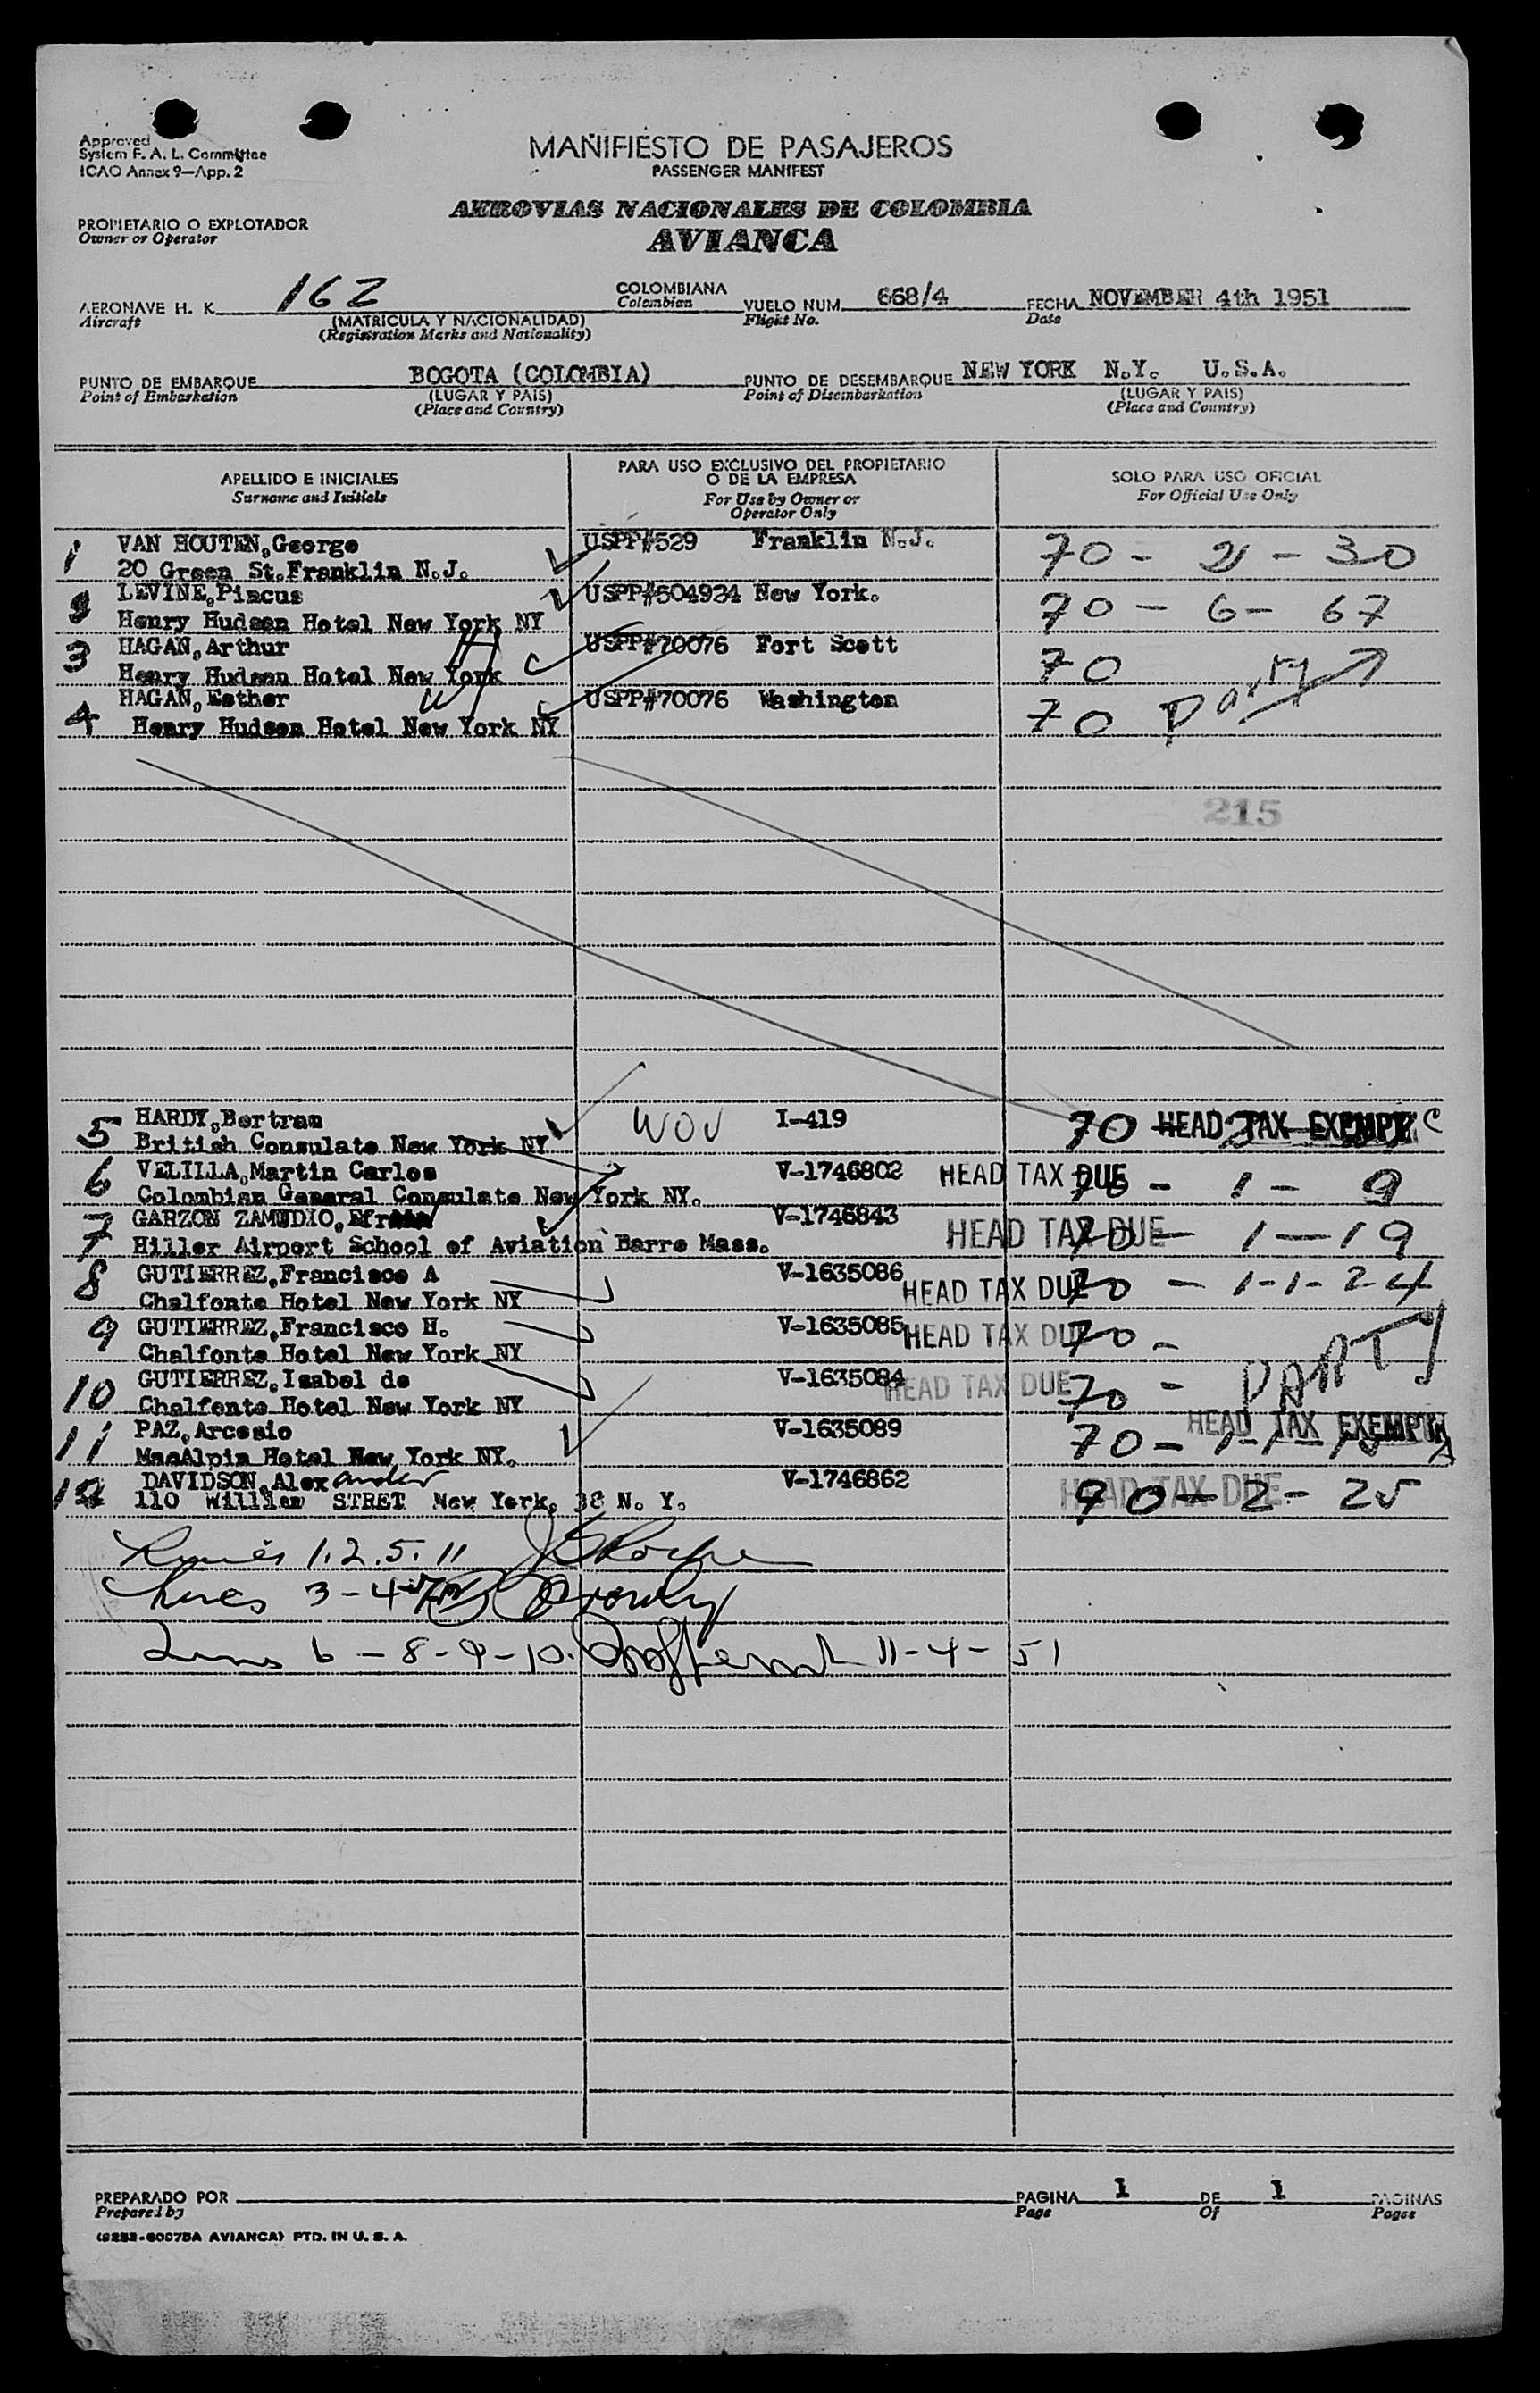 Approved
System F. A. L. Committee
ICAO Annex 9—App. 2
MANIFIESTO DE PASAJEROS
PASSENGER MANIFEST
PROPIETARIO O EXPLOTADOR
Owner or Operator
AEROVIAS NACIONALES DE COLOMBIA
AVIANCA
AERONAVE H. K. 162 COLOMBIANA VUELO NUM. 668/4 FECHA NOVEMBER 4th 1951
Aircraft (MATRICULA Y NACIONALIDAD) Colombian Flight No. Date
(Registration Marks and Nationality)
PUNTO DE EMBARQUE BOGOTA (COLOMBIA) PUNTO DE DESEMBARQUE NEW YORK N.Y. U.S.A.
Point of Embarkation (LUGAR Y PAIS) Point of Disembarkation (LUGAR Y PAIS)
(Place and Country) (Place and Country)
APELLIDO E INICIALES
Surname and Initials
PARA USO EXCLUSIVO DEL PROPIETARIO
O DE LA EMPRESA
For Use by Owner or
Operator Only
SOLO PARA USO OFICIAL
For Official Use Only
1 VAN HOUTEN,George USPP#529 Franklin N.J. 70 - 2 - 30
20 Green St.Franklin N.J.
2 LEVINE,Pincus USPP#604924 New York. 70 - 6 - 67
Henry Hudson Hotel New York NY
3 HAGAN,Arthur USPP#70076 Fort Scott 70
Henry Hudson Hotel New York
4 HAGAN,Esther USPP#70076 Washington 70 Party
Henry Hudson Hotel New York NY
215
5 HARDY,Bertram WOV I-419 70 HEAD TAX EXEMPT C
British Consulate New York NY
6 VELILLA,Martin Carlos V-1746802 HEAD TAX DUE 70 - 1 - 9
Colombian General Consulate New York NY.
7 GARZON ZAMUDIO, V-1746843 HEAD TAX DUE 70 - 1 - 19
Hiller Airport School of Aviation Barre Mass.
8 GUTIERREZ,Francisco A V-1635086 HEAD TAX DUE 70 - 1-1-24
Chalfonte Hotel New York NY
9 GUTIERREZ,Francisco H. V-1635085 HEAD TAX DUE 70 -
Chalfonte Hotel New York NY
10 GUTIERREZ,Isabel de V-1635084 HEAD TAX DUE 70 - PARTY
Chalfonte Hotel New York NY
11 PAZ,Arcesio V-1635089 70 - HEAD TAX EXEMPT
MacAlpin Hotel New York NY.
12 DAVIDSON,Alexander V-1746862 HEAD TAX DUE 70 - 2 - 25
110 William STRET New York, 38 N. Y.
1.2.5.11
3 - 4
6 - 8 - 9 - 10. 11-4-51
PREPARADO POR PAGINA 1 DE 1 PAGINAS
Prepared by Page Of Pages
(9252-60075A AVIANCA) PTD. IN U. S. A.